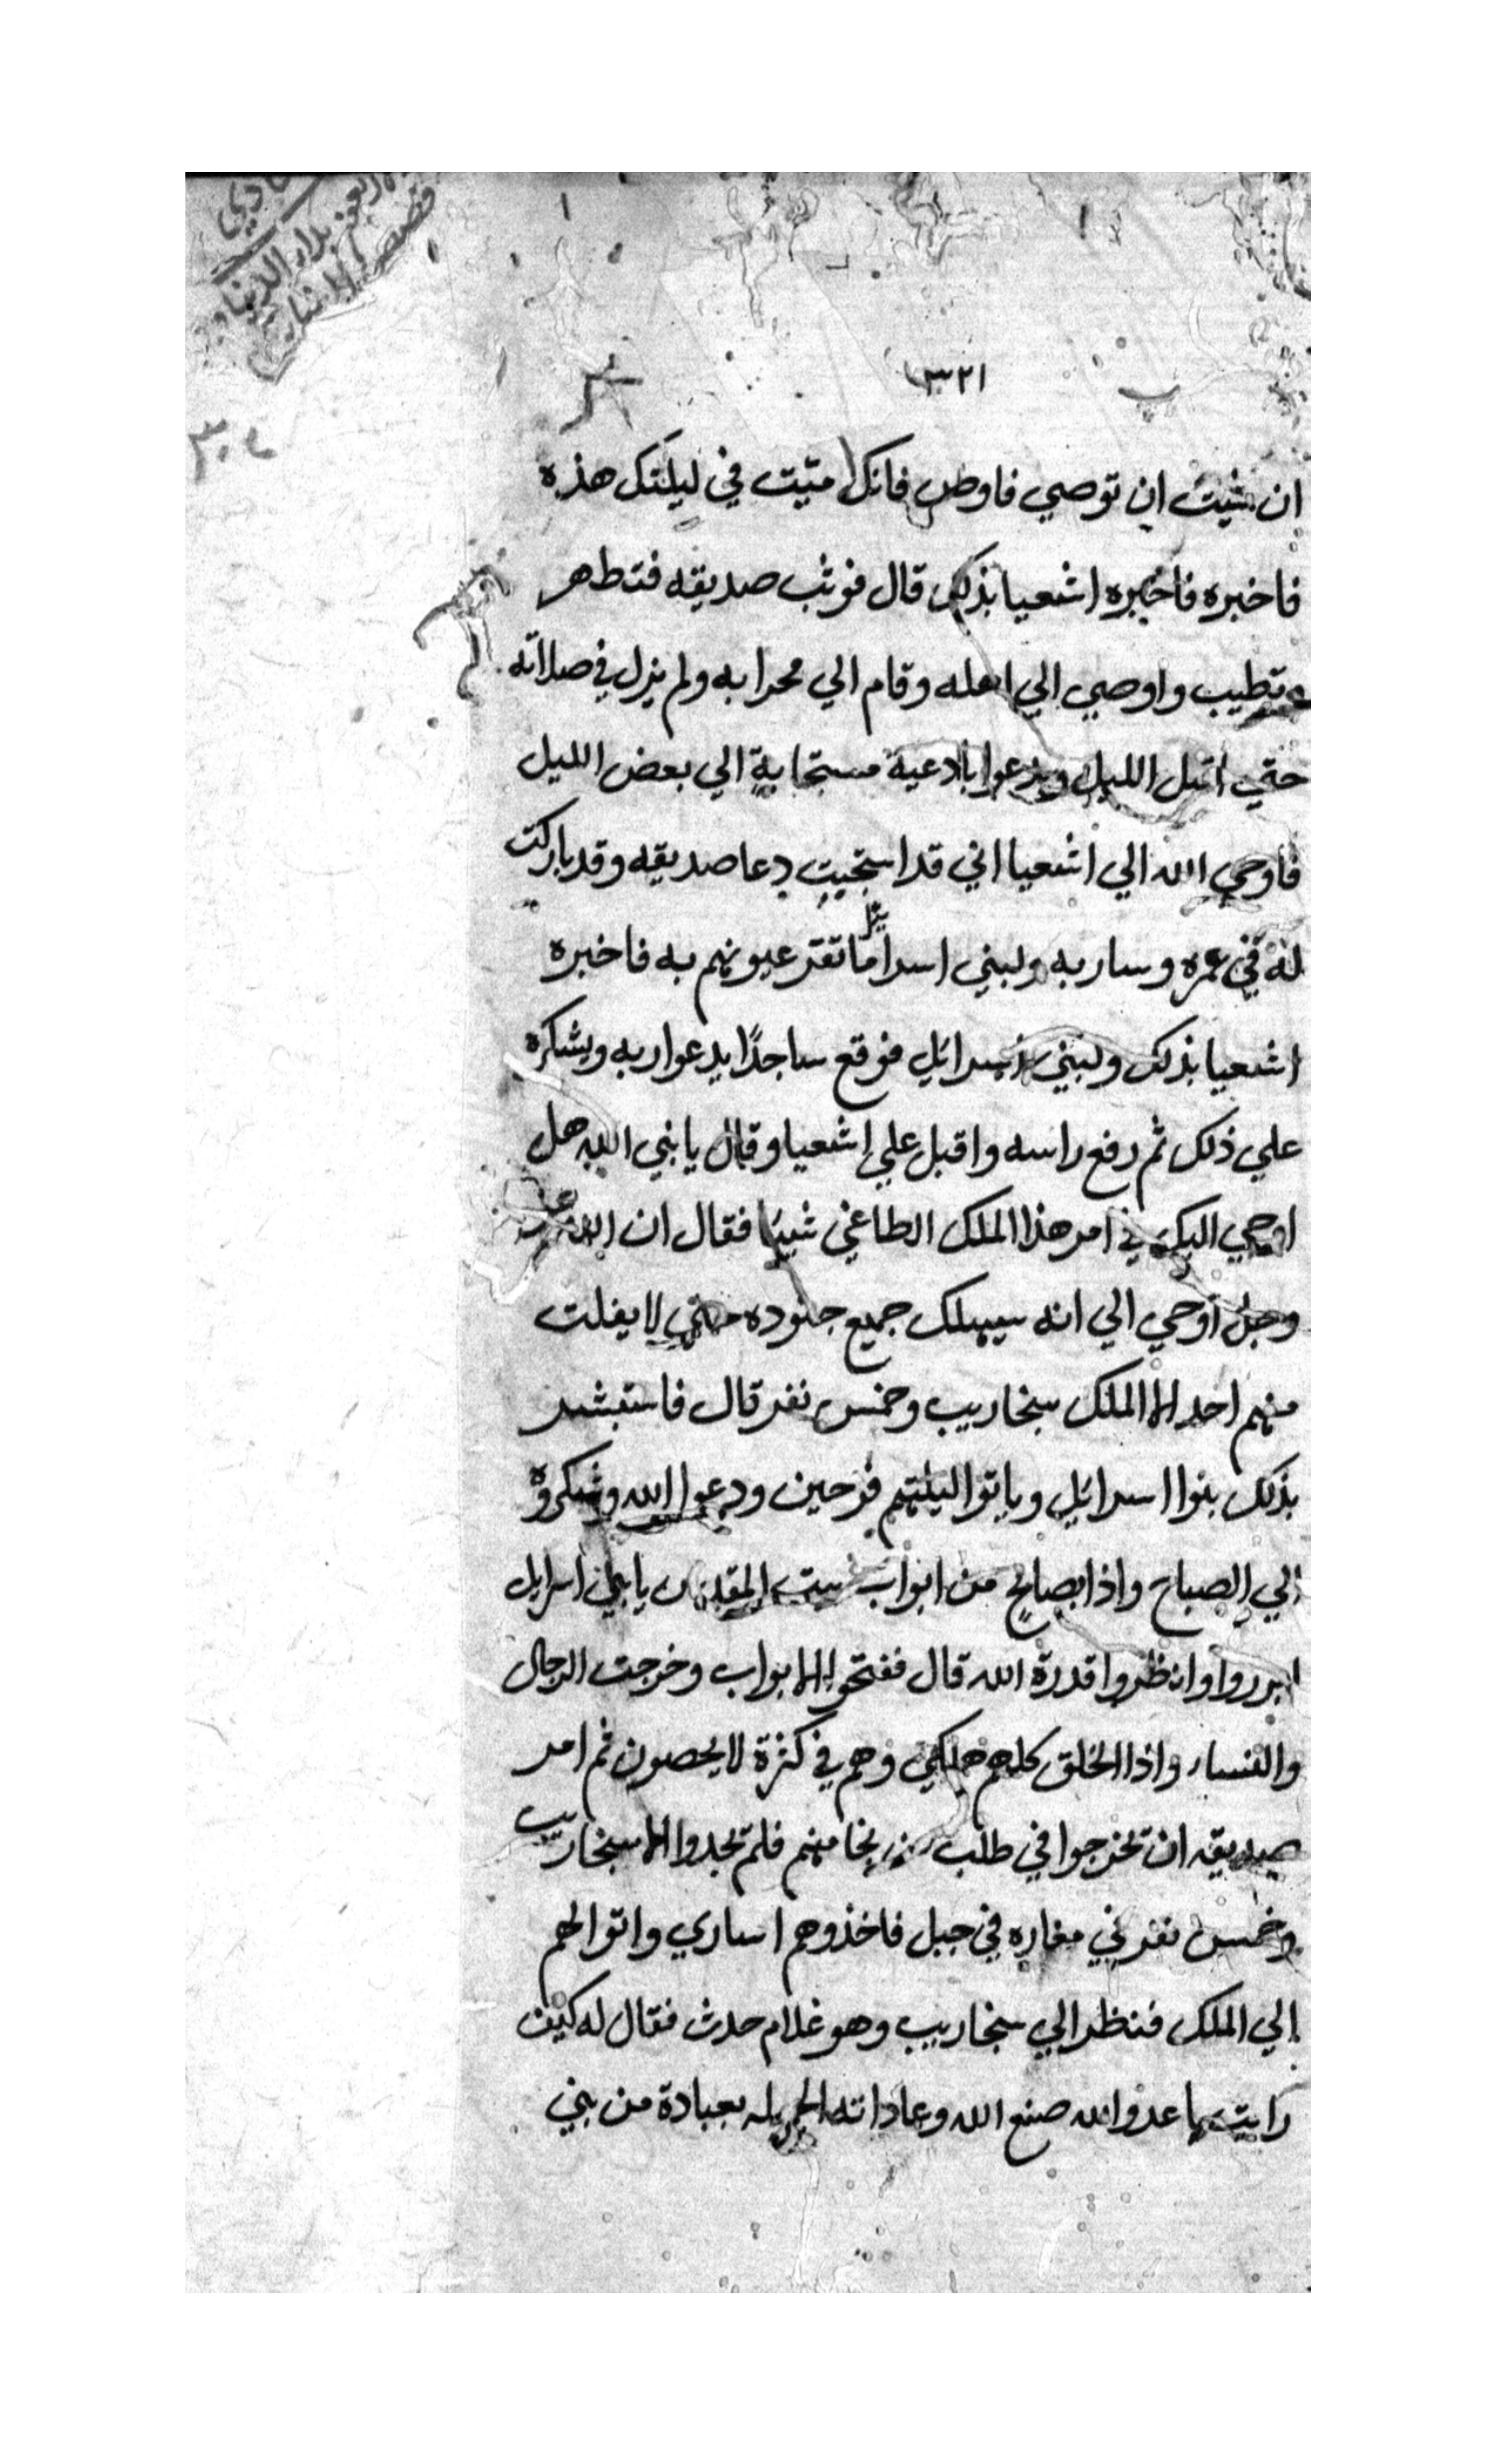 ٣٢١
ان شيت ان توصي فاوص فانك ميّت في ليلتك هذه
فاخبره فاخبره اشعيا بذلك قال فوثب صديقه فتطهر
وتطيب واوصي الي اهله وقام الي محرابه ولم يزل في صلاته
حتي اقبل الليل ويدعوا بادعية مستجابة الي بعض الليل
فاوحي الله الي اشعيا اني قد استجبت دعا صديقه وقد باركت
له في عمره وساربه ولبني اسرائيل ما تقر عيونهم به فاخبره
اشعيا بذلك ولبني اسرائيل فوقع ساجدًا يدعوا ربه ويشكره
علي ذلك ثم رفع راسه واقبل علي اشعيا وقال يا نبي الله هل
اوحي اليك في امر هذا الملك الطاغي شييا فقال ان الله عز
وجل اوحي الي انه سيهلك جميع جنوده حتي لا يفلت
منهم احد الا الملك سنخاريب وخمس نفر قال فاستبشر
بذلك بنوا اسرائيل وباتوا ليلتهم فرحين ودعوا الله وشكروه
الي الصباح واذا بصايح من ابواب بيت المقدس يا بني اسرايل
ابرروا وانظروا قدرة الله قال ففتحوا الابواب وخرجت الرجال
والنساء واذا الخلق كلهم هلكي وهم في كثرة لا يحصون ثم امر
صديقه ان تخرجوا في طلب من نجا منهم فلم تجدوا الا سنخاريب
وخمس نفر في مغاره في جبل فاخذوهم اساري واتوا بهم
الي الملك فنظر الي سنخاريب وهو غلام حدث فقال له كيف
رايت يا عدو الله صنع الله وعاداته الجميله بعبادة من بني